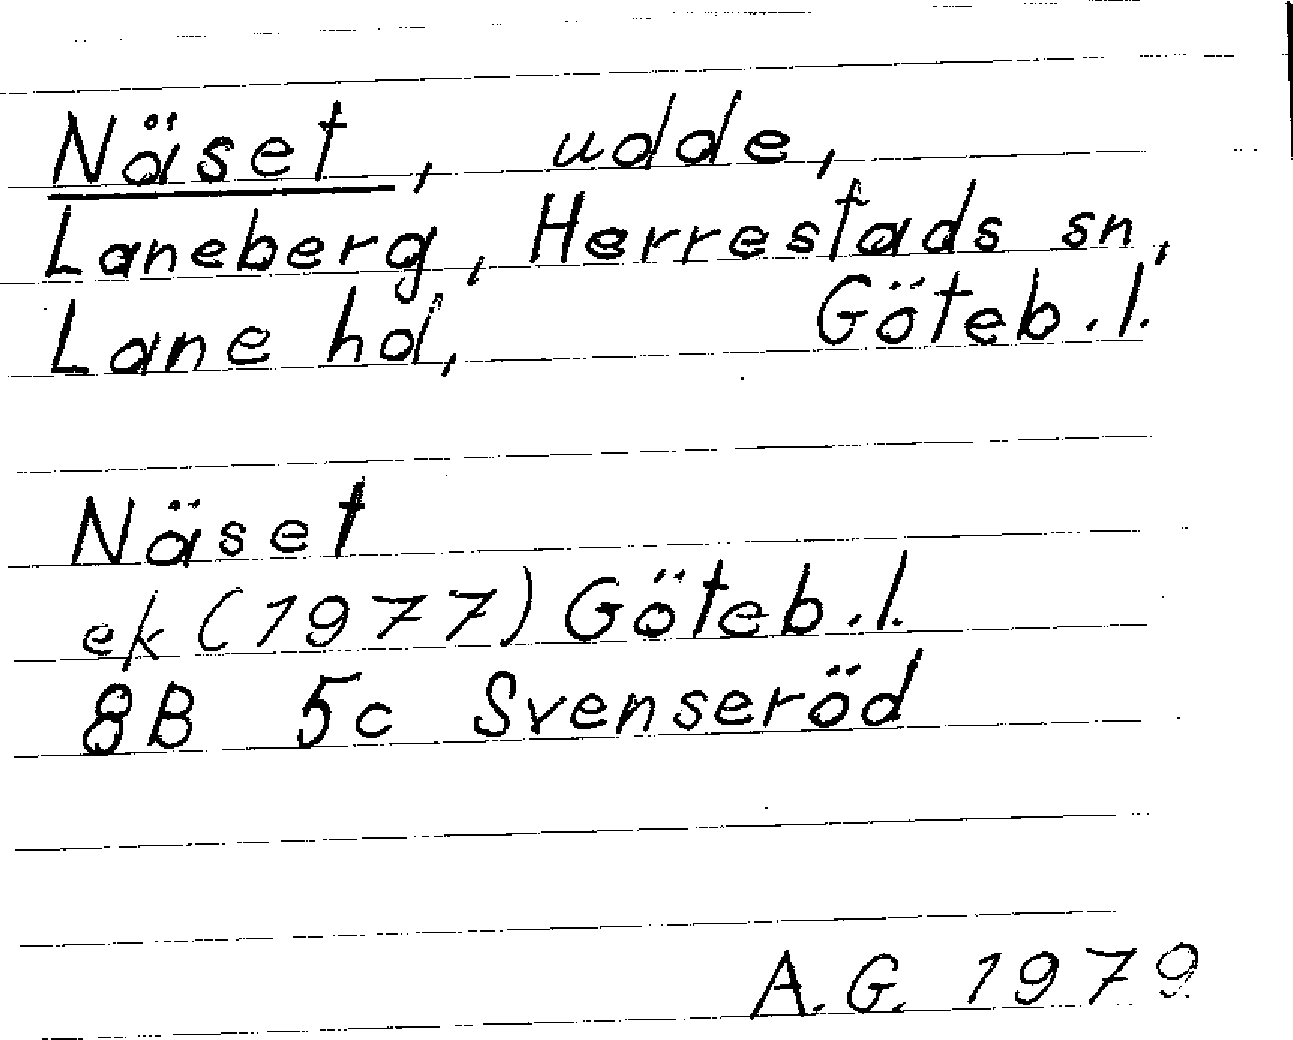 Näset, udde,
Laneberg, Herrestads sn,
Lane hd, Göteb.l.
Näset
ek (1977) Göteb.l.
8B 5c Svenseröd
A.G. 1979